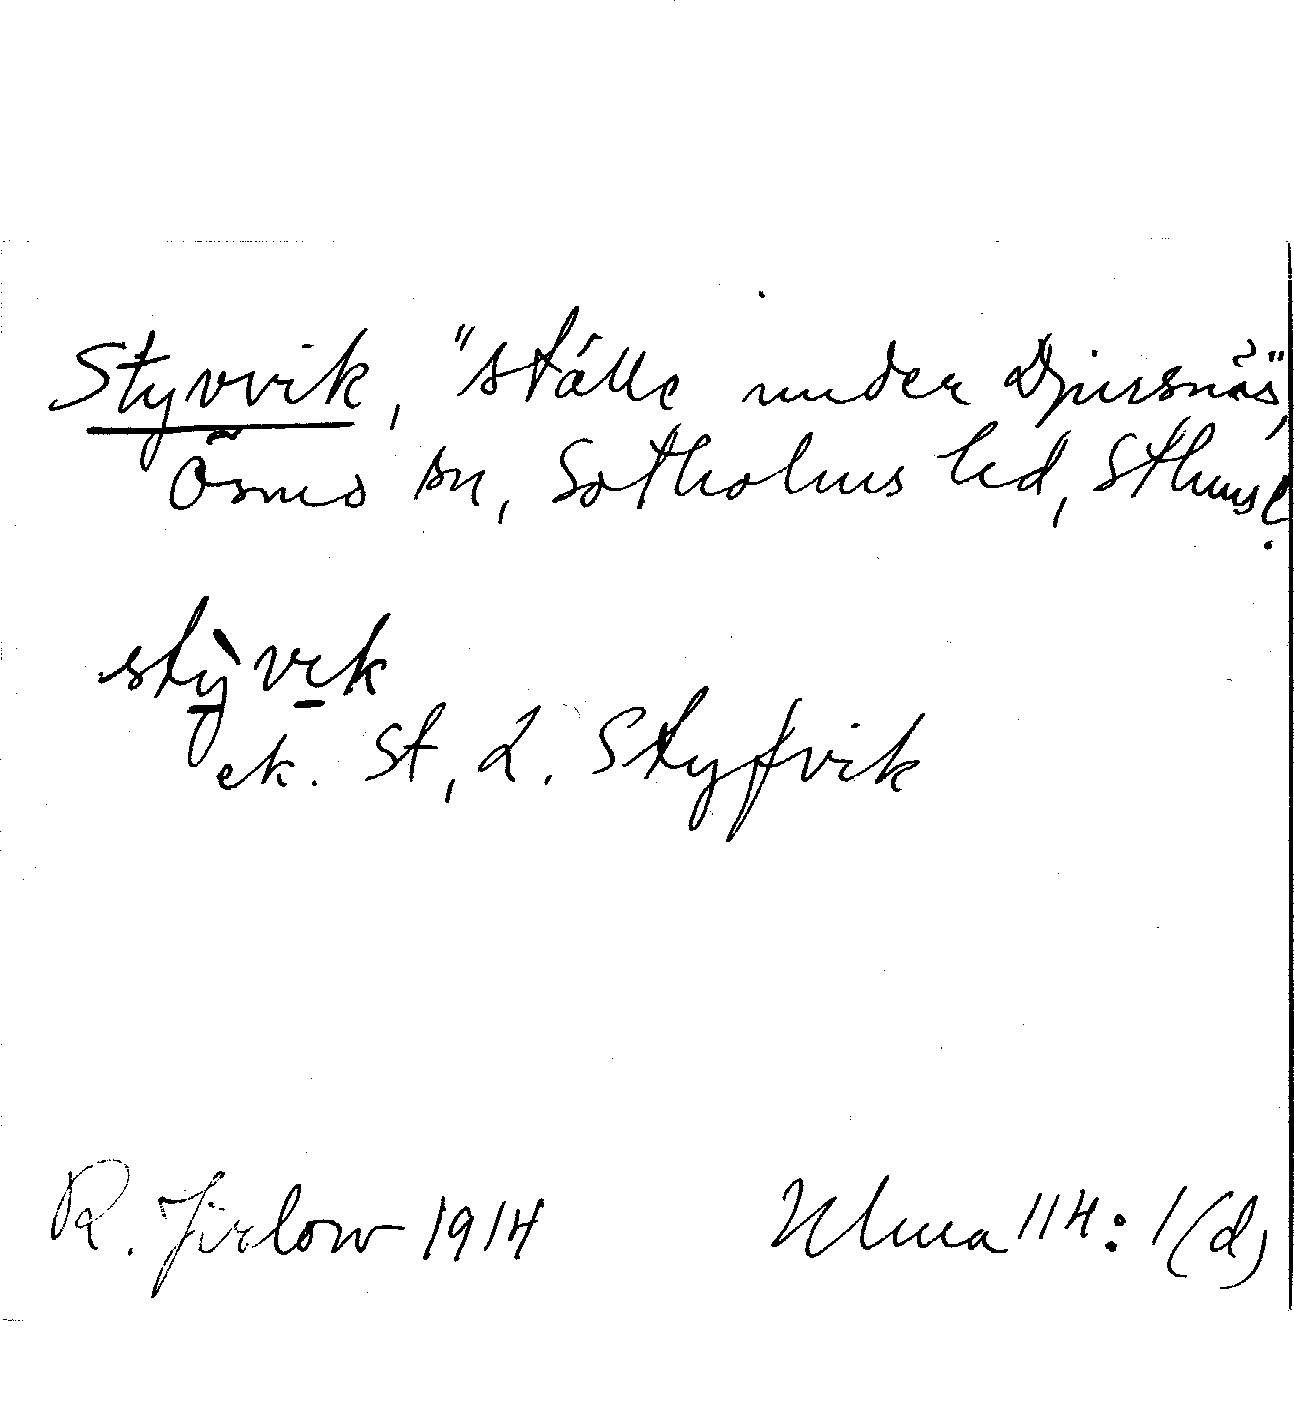 Styvvik, "ställe under Djursnäs",
Ösmo sn, Sotholms hd, Sthms l.
stỳvik
ek. St, L. Styfvik
R. Jirlow 1914 Ulma 114:1(d)